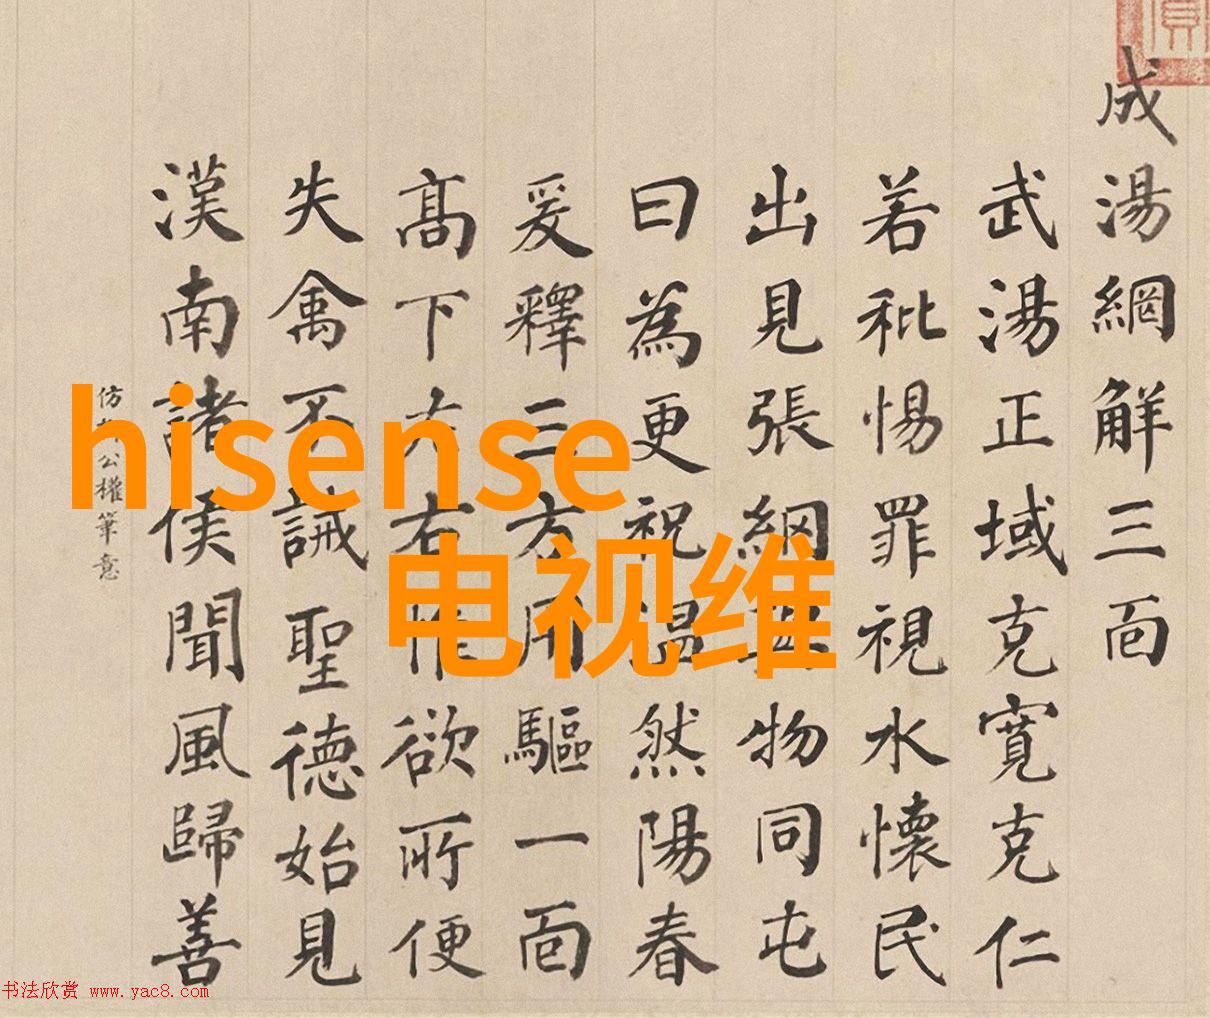 成湯網解三面
武湯正域克寬克仁
若秕惕罪視水懷民
出見張網物同屯
曰為更祝溫然陽春
爰釋三方用驅一面
高下左右惟欲所便
失禽不誡聖德始見
漢南諸侯聞風歸善
仿柳公權筆意
hisense
电视维
书法欣赏 www.yac8.com